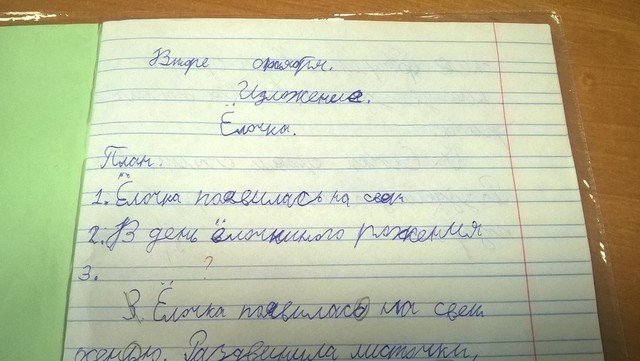 октября.
Изложение.
Ёлочка.
План.
1. Ёлочка появилась на свет
2. В день ёлочкиного рожения
3. ?
Ёлочка появилась на свет
осенью. Раздвинула листочки,